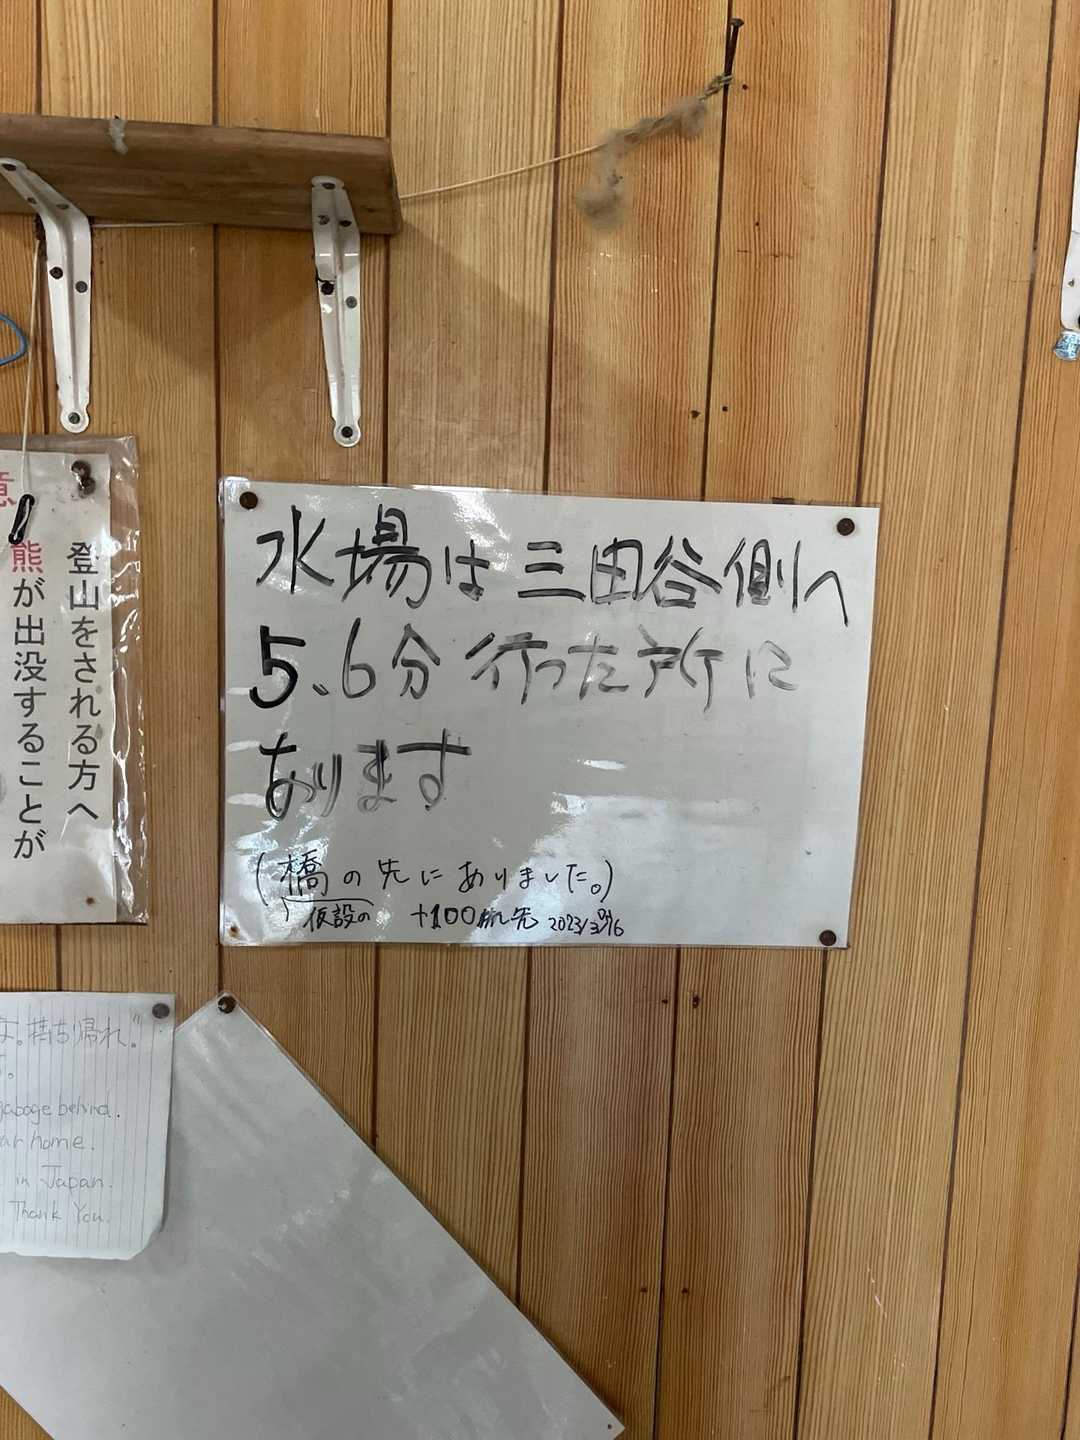 意
登山をされる方へ
熊が出没することが
水場は三田谷側へ
5、6分行った所に
あります
(橋の先にありました。)
仮設の +100m先 2023/3/16
持ち帰れ"
behind.
home.
in Japan.
Thank You.